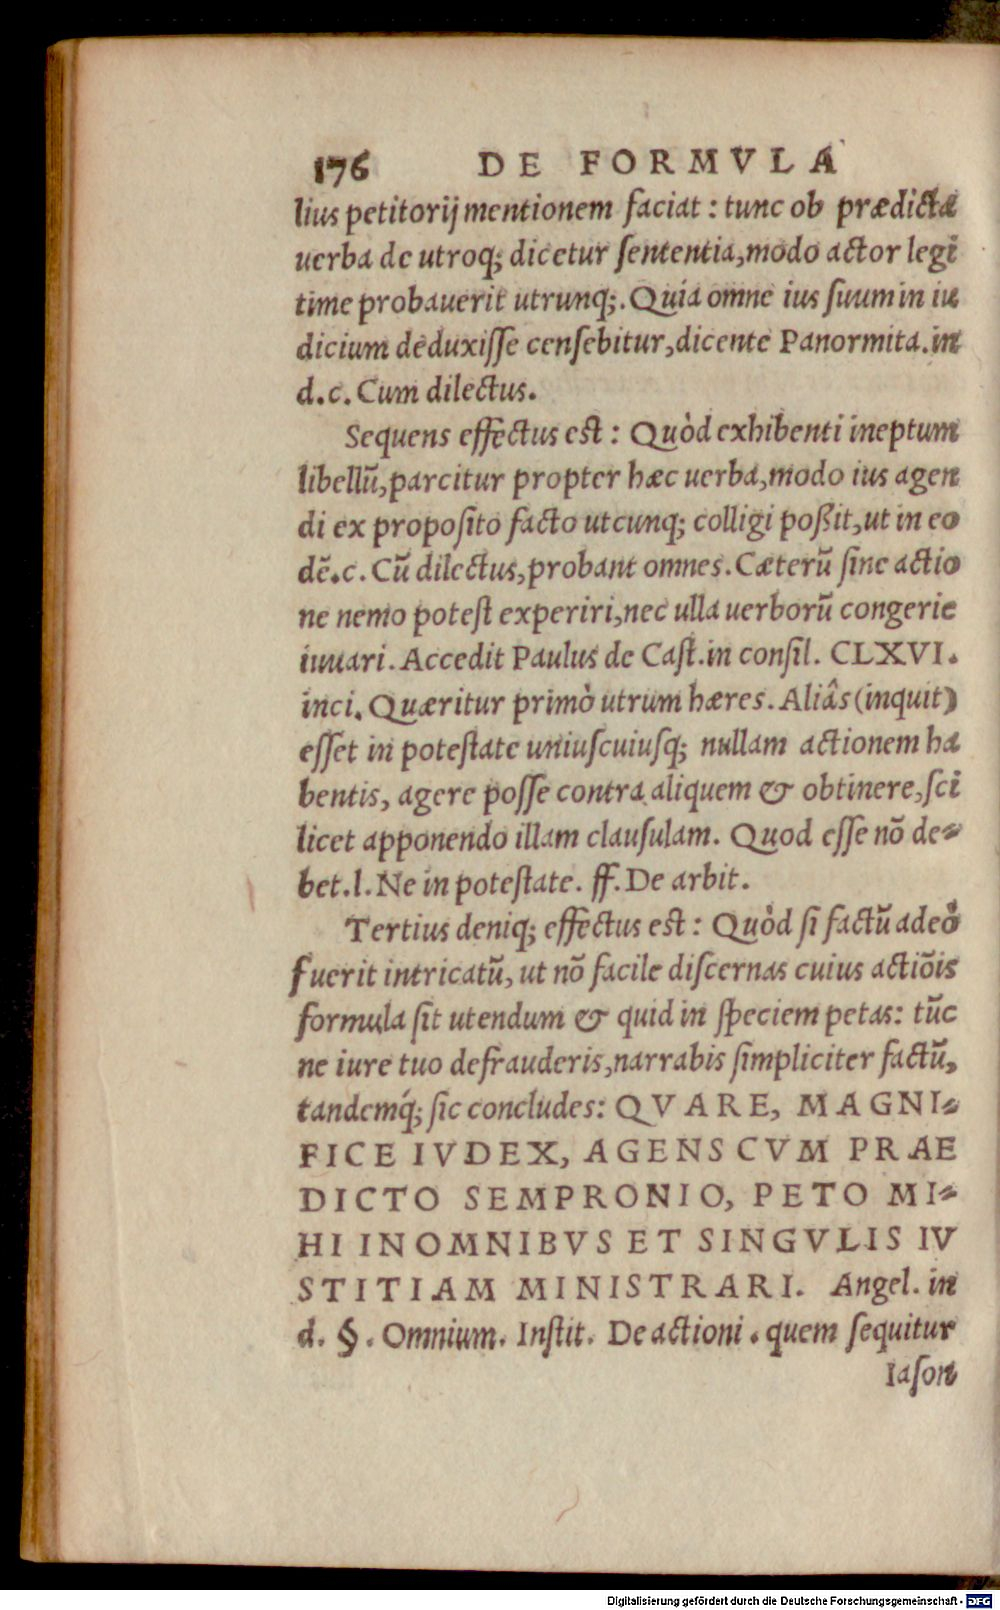 176 DE FORMVLA
lius petitorij mentionem faciat : tunc ob prædicta
uerba de utroq; dicetur ſententia,modo actor legi
time probauerit utrunq;. Quia omne ius ſuum in iu
dicium deduxiſſe cenſebitur,dicente Panormita.in
d.c. Cum dilectus.
Sequens effectus est : Quòd exhibenti ineptum
libellū,parcitur propter hæc uerba,modo ius agen
di ex propoſito facto utcunq; colligi poßit,ut in eo
dē.c. Cū dilectus,probant omnes. Cæterū ſine actio
ne nemo poteſt experiri,nec ulla uerborū congerie
iuuari. Accedit Paulus de Caſt.in conſil. CLXVI.
inci. Quæritur primò utrum hæres. Aliâs (inquit)
eſſet in poteſtate uniuſcuiuſq; nullam actionem ha
bentis, agere poſſe contra aliquem & obtinere,ſci
licet apponendo illam clauſulam. Quod eſſe nō de-
bet.l. Ne in poteſtate. ff. De arbit.
Tertius deniq; effectus est : Quòd ſi factū adeò
fuerit intricatū, ut nō facile diſcernas cuius actiōis
formula ſit utendum & quid in ſpeciem petas: tūc
ne iure tuo defrauderis,narrabis ſimpliciter factū,
tandemq́; ſic concludes: QVARE, MAGNI-
FICE IVDEX, AGENS CVM PRAE
DICTO SEMPRONIO, PETO MI-
HI IN OMNIBVS ET SINGVLIS IV
STITIAM MINISTRARI. Angel. in
d. §. Omnium. Inſtit. De actioni . quem ſequitur
Iaſon
Digitalisierung gefördert durch die Deutsche Forschungsgemeinschaft - DFG